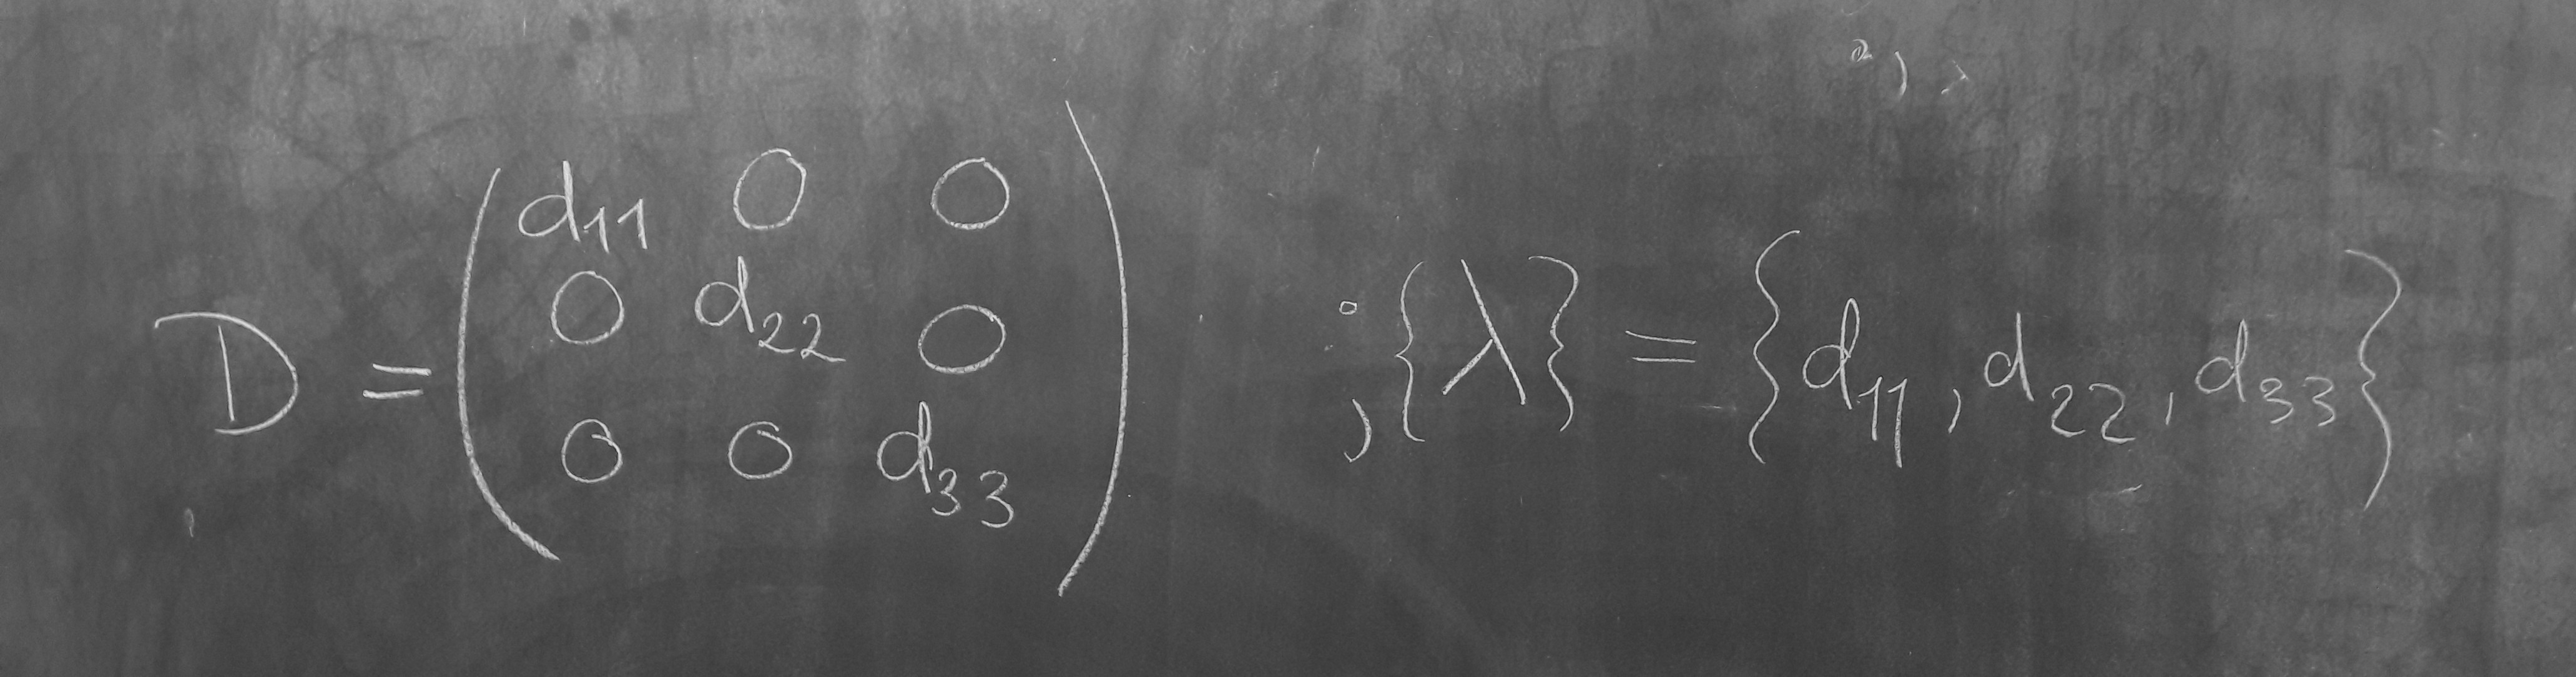 D = ( d₁₁ 0 0
0 d₂₂ 0
0 0 d₃₃ ) ; {λ} = { d₁₁ , d₂₂ , d₃₃ }